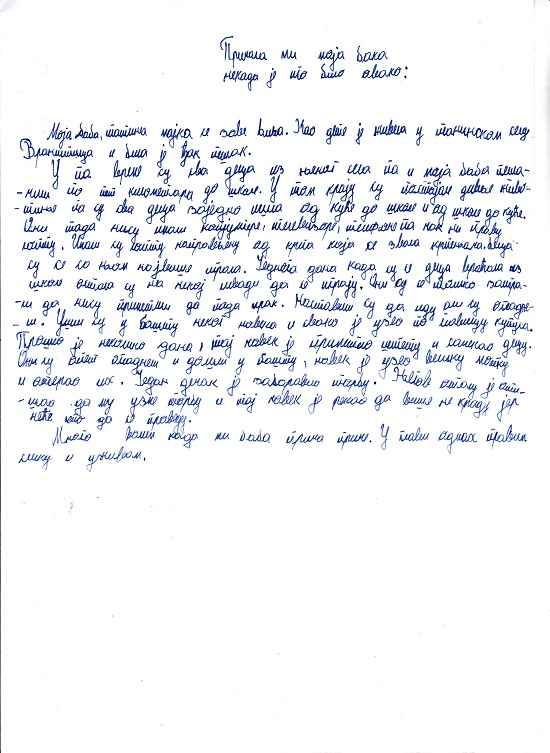 Причала ми моја бака
некада је то било овако:
Моја баба, татина мајка се зове Виља. Као дете је живела у планинском селу
Вранштица и била је ђак пешак.
У то време су сва деца из њеног села па и моја баба пеша-
-чили по пет километара до школе. У том крају су постојале дивље живо-
-тиње па су сва деца заједно ишла од куће до школе и од школе до куће.
Они тада нису имали компјутере, телевизоре, телефоне па чак ни праву
лопту. Имали су лопту направљену од крпа која се звала крпењача. Деца
су се со њом највише играла. Једнога дана када су се деца враћала из
школе остала су на некој ливади да се играју. Они су се толико заигра-
-ли да нису приметили да пада мрак. Наставили су да иду али су огладне-
-ли. Ушли су у башту неког човека и свако је узео по главицу купуса.
Прошло је неколико дана, тај човек је приметио штету и чекао децу.
Они су опет огладнели и дошли у башту, човек је узео велику мотку
и отерао их. Један дечак је заборавио торбу. Његов отац је оти-
-шао да му узме торбу и тај човек је рекао да више не краду јер
неће што да се праводу.
Много волим када ми баба прича приче. У глави одмах правим
слику и уживам.